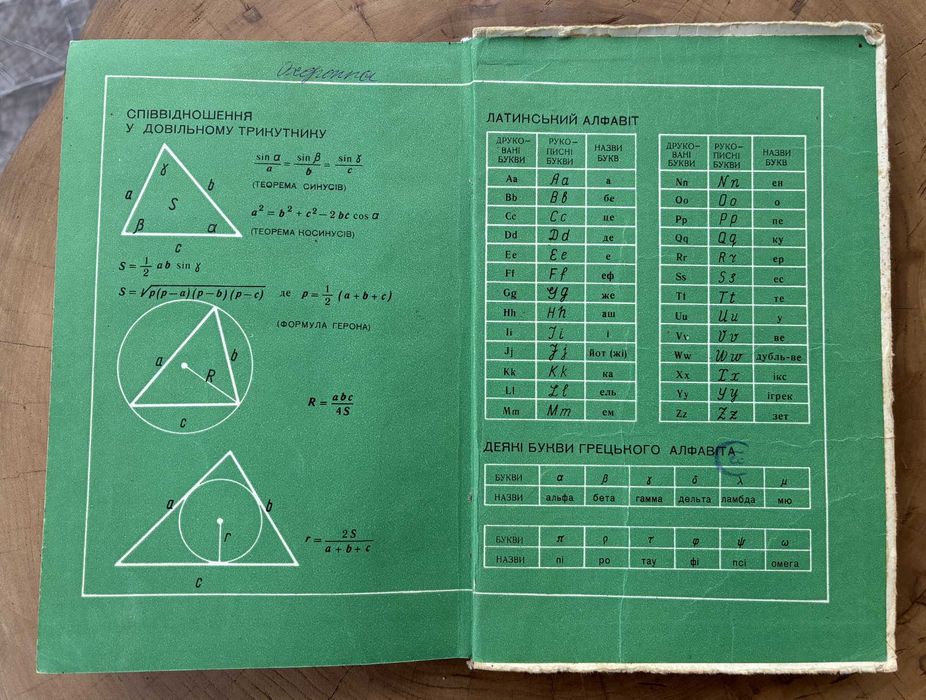 СПІВВІДНОШЕННЯ
У ДОВІЛЬНОМУ ТРИКУТНИКУ
a ɣ b
S
β α
c
sin α / a = sin β / b = sin ɣ / c
(ТЕОРЕМА СИНУСІВ)
a² = b² + c² – 2 bc cos α
(ТЕОРЕМА КОСИНУСІВ)
S = 1/2 ab sin ɣ
S = √p(p–a)(p–b)(p–c) де p = 1/2 (a+b+c)
(ФОРМУЛА ГЕРОНА)
a b
R
c
R = abc / 4S
a b
r
c
r = 2S / a+b+c
ЛАТИНСЬКИЙ АЛФАВІТ
ДРУКО– РУКО– НАЗВИ
ВАНІ ПИСНІ БУКВ
БУКВИ БУКВИ
Aa Aa а
Bb Bb бе
Cc Cc це
Dd Dd де
Ee Ee е
Ff Ff еф
Gg Gg же
Hh Hh аш
Ii Ii і
Jj Jj йот (жі)
Kk Kk ка
Ll Ll ель
Mm Mm ем
ДРУКО– РУКО– НАЗВИ
ВАНІ ПИСНІ БУКВ
БУКВИ БУКВИ
Nn Nn ен
Oo Oo о
Pp Pp пе
Qq Qq ку
Rr Rr ер
Ss Ss ес
Tt Tt те
Uu Uu у
Vv Vv ве
Ww Ww дубль-ве
Xx Xx ікс
Yy Yy ігрек
Zz Zz зет
ДЕЯКІ БУКВИ ГРЕЦЬКОГО АЛФАВІТА
БУКВИ α β ɣ δ λ μ
НАЗВИ альфа бета гамма дельта ламбда мю
БУКВИ π ρ τ φ ψ ω
НАЗВИ пі ро тау фі псі омега